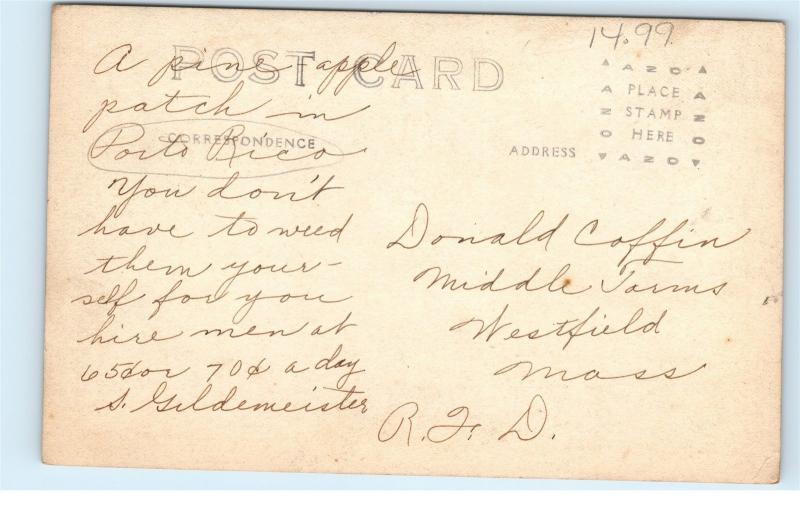 14.99
POST CARD
A pine-apple
patch in
CORRESPONDENCE
Porto Rico
You don't
have to weed
them your-
self for you
hire men at
65¢ or 70¢ a day
S. Gildemeister
AZO
PLACE
STAMP
HERE
AZO
AZO
AZO
ADDRESS
Donald Coffin
Middle Farms
Westfield
Mass
R. F. D.